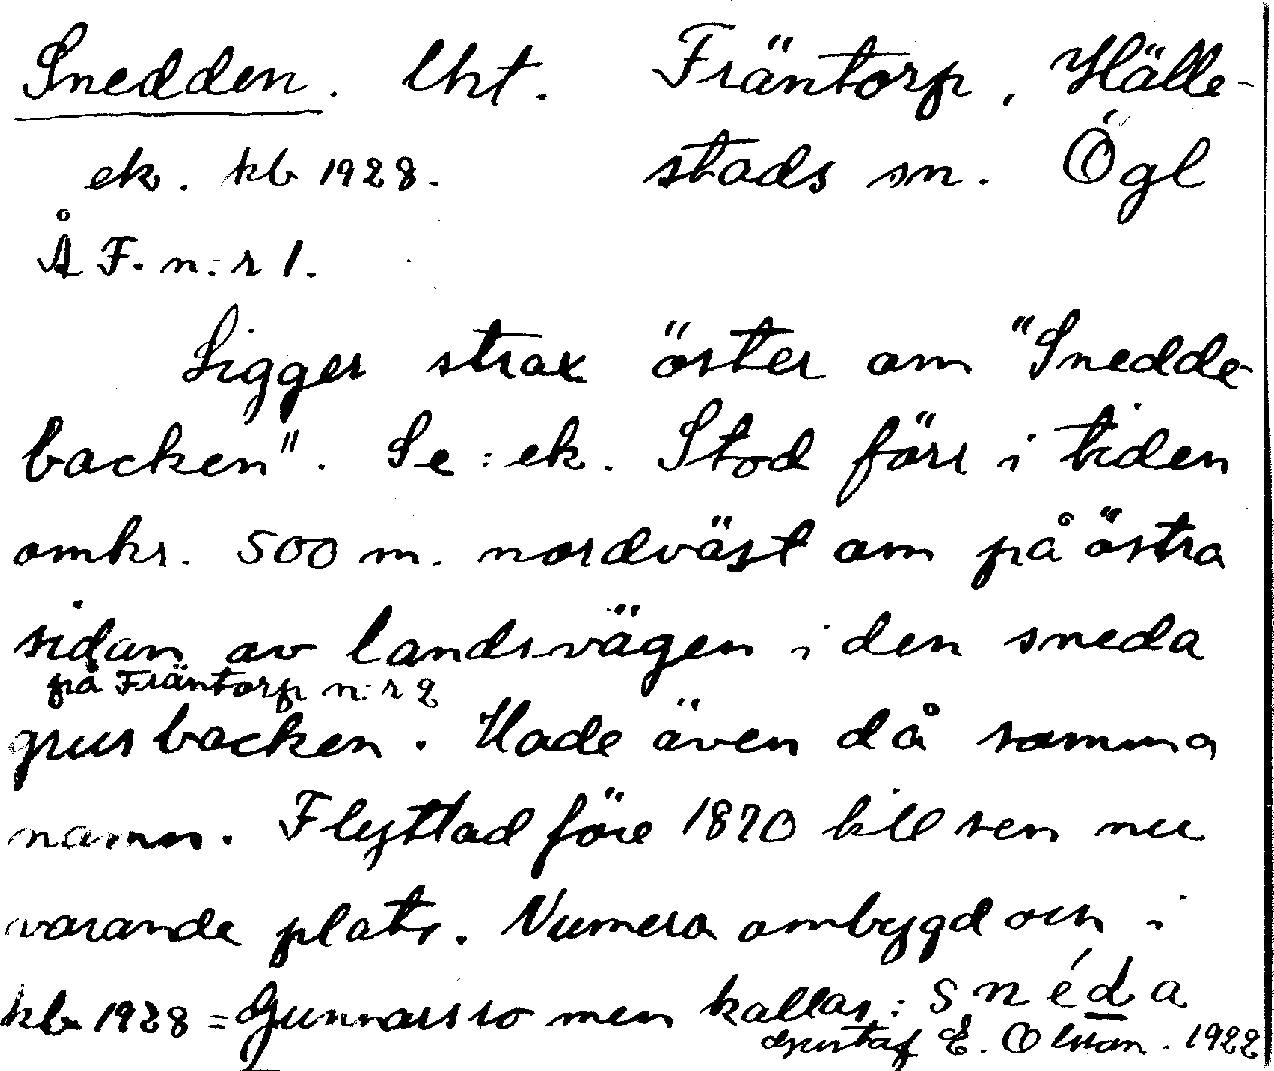 Snedden. lht. Fräntorp, Hälle-
ek. kb 1928. stads sn. Ögl
Å F. n:r 1.
Ligger strax öster om "Snedde-
backen". Se: ek. Stod förr i tiden
omkr. 500 m. nordväst om på östra
sidan av landsvägen i den sneda
på Fräntorp n:r 2
grusbacken. Hade även då samma
namn. Flyttad före 1870 till sen nu
varande plats. Numera ombygd och i
kb 1928 = Gunnarsro men kallas: snéda
Gustaf E. Olsson. 1922